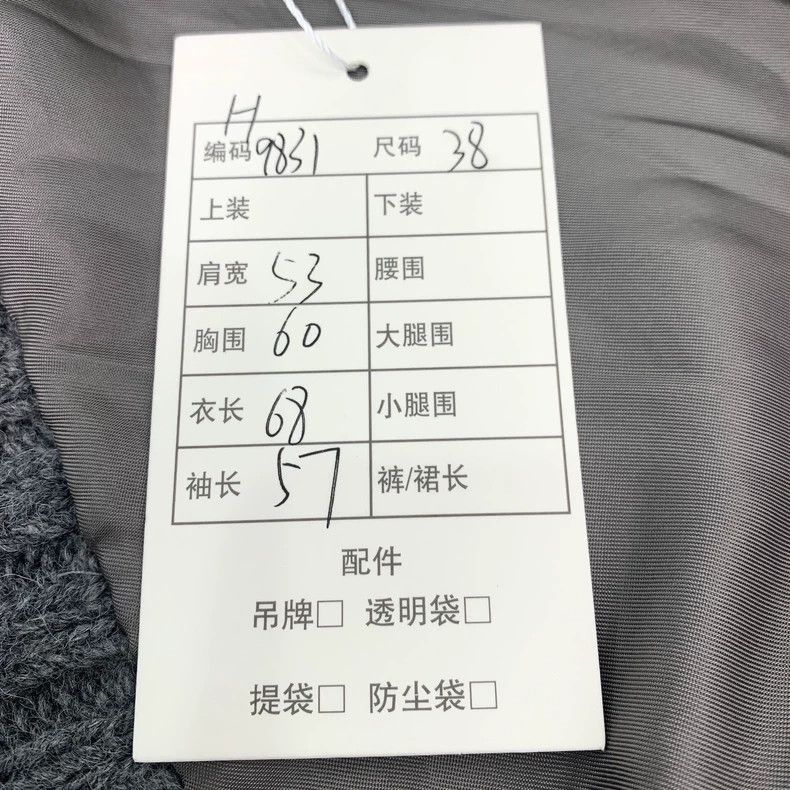 H
编码 9831 尺码 38
上装 下装
肩宽 53 腰围
胸围 60 大腿围
衣长 68 小腿围
袖长 57 裤/裙长
配件
吊牌□ 透明袋□
提袋□ 防尘袋□